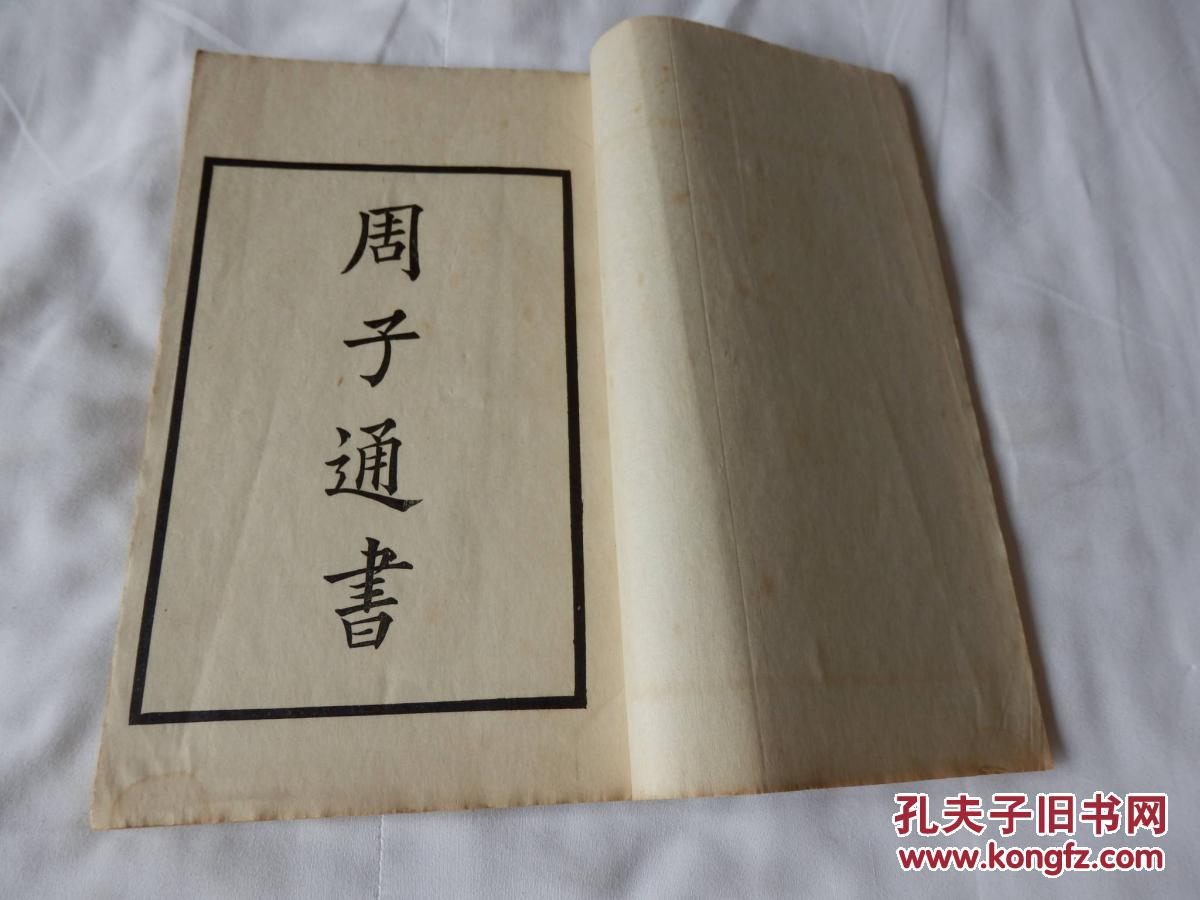 周子通書
孔夫子旧书网
www.kongfz.com